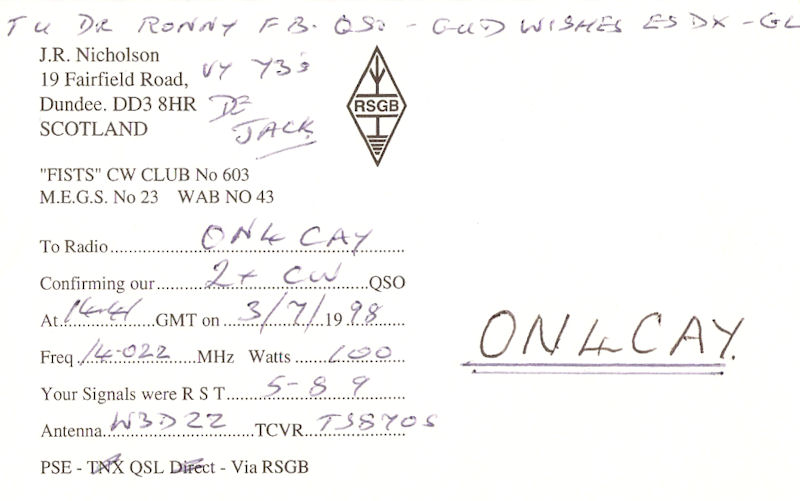 TU DR RONNY FB. QSO - GUD WISHES ES DX - GL
J.R. Nicholson
19 Fairfield Road, VY 73s
Dundee. DD3 8HR DE
SCOTLAND JACK
RSGB
"FISTS" CW CLUB No 603
M.E.G.S. No 23 WAB NO 43
To Radio ON4CAY
Confirming our 2x CW QSO
At 14.41 GMT on 3/7/19 98
Freq 14.022 MHz Watts 100
ON4CAY.
Your Signals were R S T 5-89
Antenna W3DZZ TCVR TS870S
PSE - TNX QSL Direct - Via RSGB